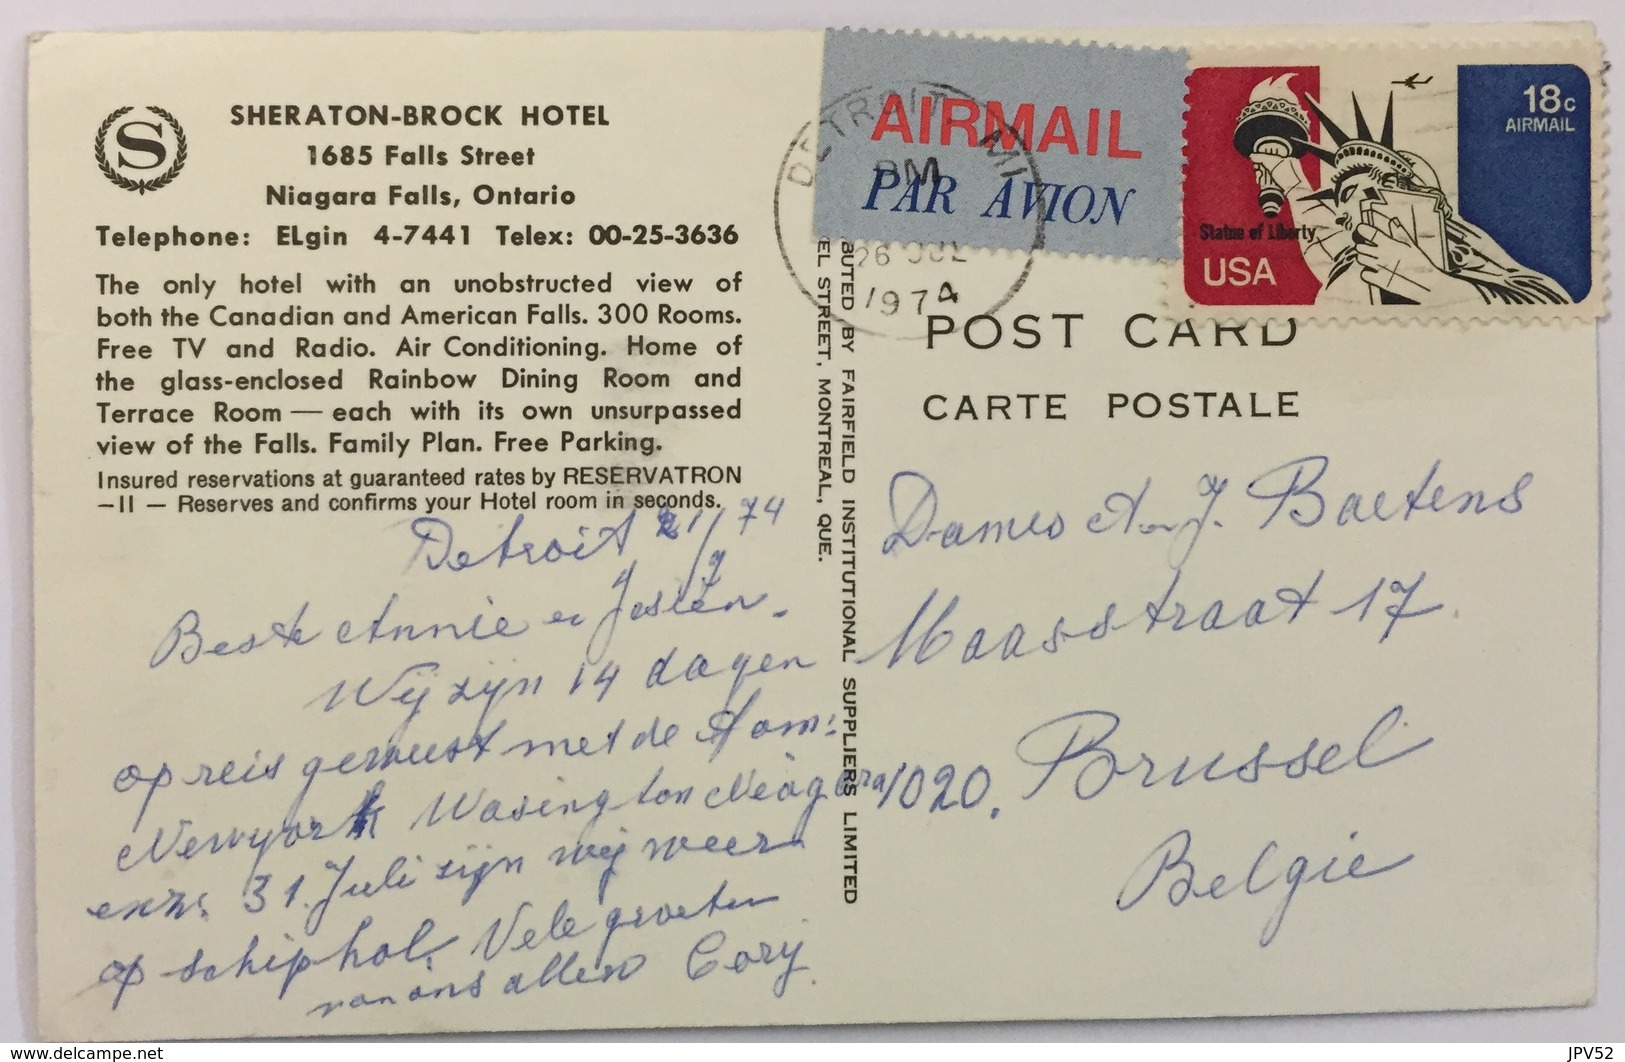 S
SHERATON-BROCK HOTEL
1685 Falls Street
Niagara Falls, Ontario
Telephone: ELgin 4-7441 Telex: 00-25-3636
The only hotel with an unobstructed view of
both the Canadian and American Falls. 300 Rooms.
Free TV and Radio. Air Conditioning. Home of
the glass-enclosed Rainbow Dining Room and
Terrace Room — each with its own unsurpassed
view of the Falls. Family Plan. Free Parking.
Insured reservations at guaranteed rates by RESERVATRON
-II — Reserves and confirms your Hotel room in seconds.
Detroit 21/7 74
Beste Annie en Josien.
Wij zijn 14 dagen
op reis geweest met de
Newyork Wasington Niagara
enz. 31 Juli zijn wij weer
op schiphol. Vele groeten
van ons allen Cory.
BUTED BY FAIRFIELD INSTITUTIONAL SUPPLIERS LIMITED
EL STREET, MONTREAL, QUE.
DETROIT MI
PM
26 JUL
1974
AIRMAIL
PAR AVION
18c
AIRMAIL
Statue of Liberty
USA
POST CARD
CARTE POSTALE
Dames A. J. Baetens
Maasstraat 17
1020. Brussel
Belgie
www.delcampe.net
JPV52